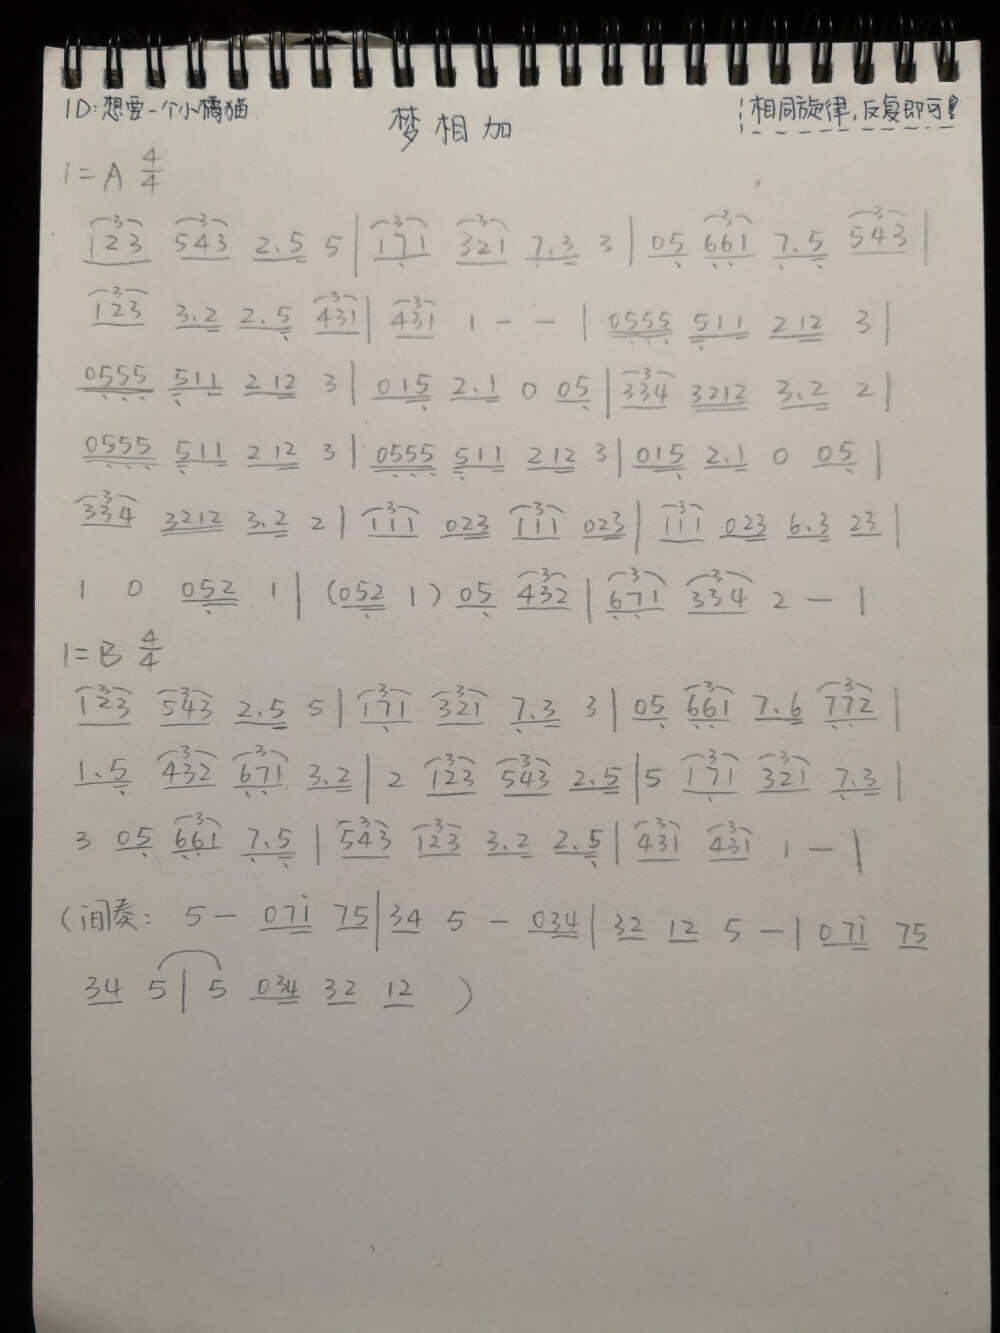 ID:想要一个小橘猫
梦相加
相同旋律,反复即可!
1=A 4/4
123 543 2.5 5|171 321 7.3 3|05 661 7.5 543|
123 3.2 2.5 431|431 1 - - |0555 511 212 3|
0555 511 212 3|015 2.1 0 05|334 3212 3.2 2|
0555 511 212 3|0555 511 212 3|015 2.1 0 05|
334 3212 3.2 2|111 023 111 023|111 023 6.3 23|
1 0 052 1|(052 1) 05 432|671 334 2 - |
1=B 4/4
123 543 2.5 5|171 321 7.3 3|05 661 7.6 772|
1.5 432 671 3.2|2 123 543 2.5|5 171 321 7.3|
3 05 661 7.5|543 123 3.2 2.5|431 431 1 - |
(间奏: 5 - 071 75|34 5 - 034|32 12 5 - |071 75
34 5|5 034 32 12 )